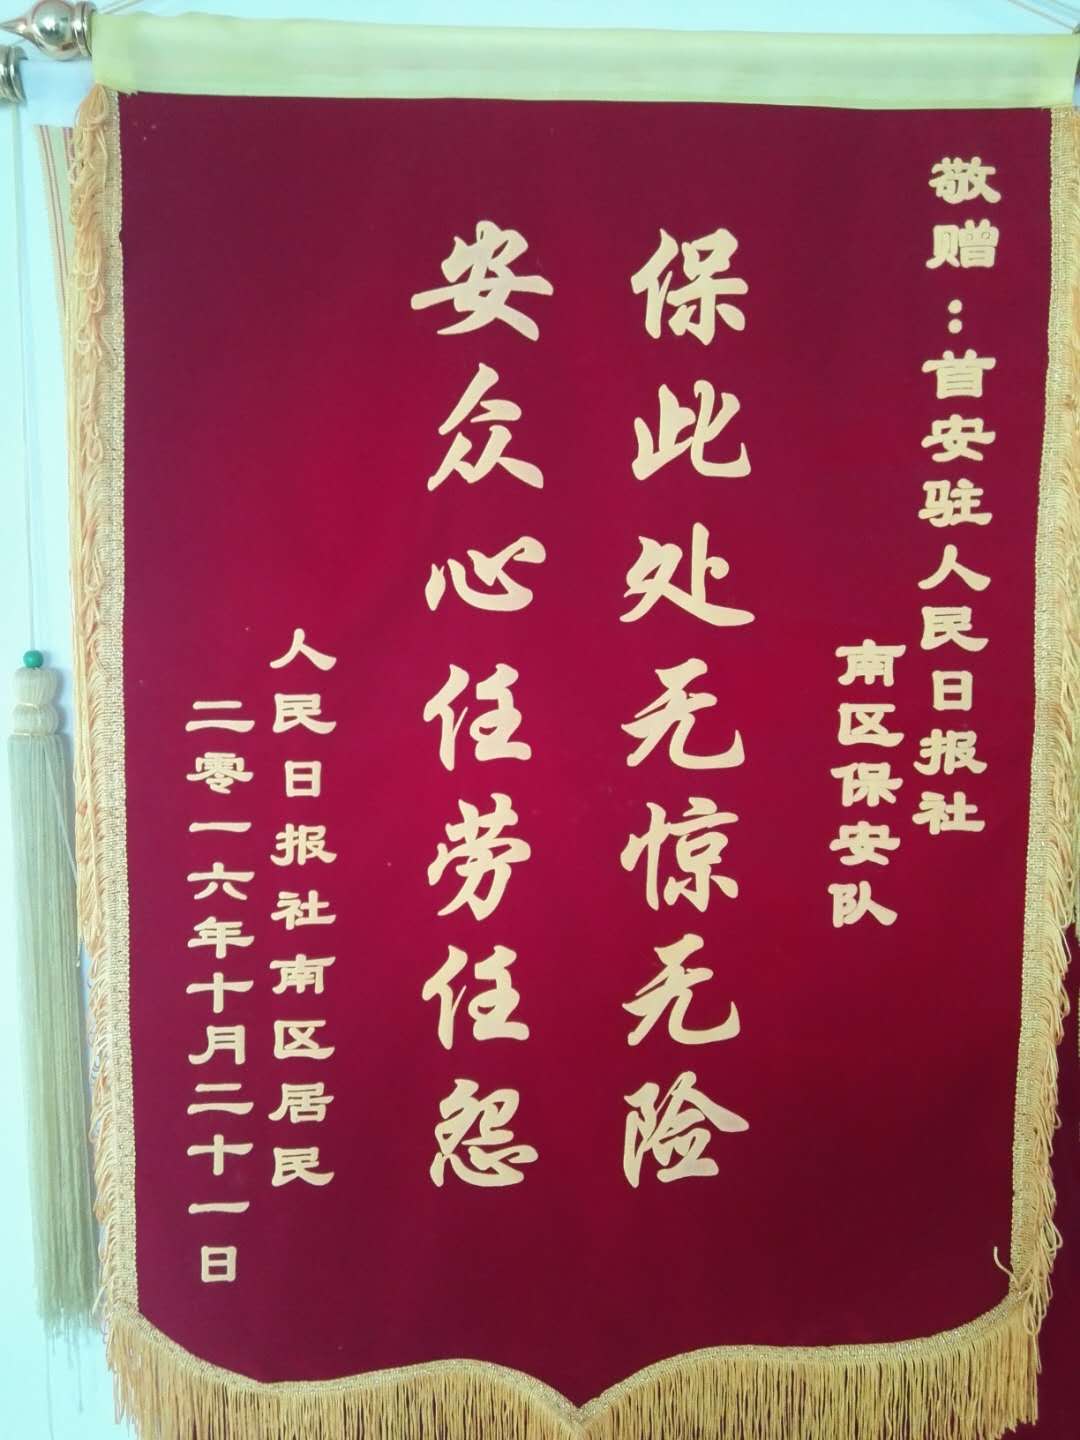 敬赠：首安驻人民日报社
南区保安队
保此处无惊无险
安众心任劳任怨
人民日报社南区居民
二零一六年十月二十一日